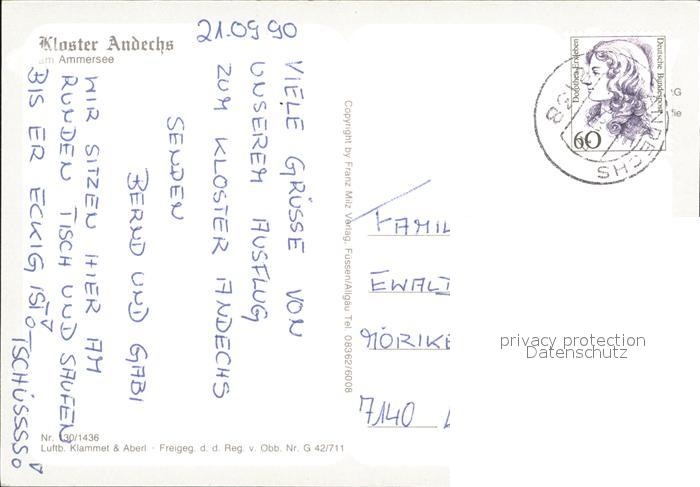 Kloster Andechs
am Ammersee
21.09.90
VIELE GRÜSSE VON
UNSEREM AUSFLUG
ZUM KLOSTER ANDECHS
SENDEN
BERND UND GABI
WIR SITZEN HIER AM
RUNDEN TISCH UND SAUFEN
BIS ER ECKIG IST
TSCHÜSSSSS
Nr. 130/1436
Luftb. Klammet & Aberl · Freigeg. d. d. Reg. v. Obb. Nr. G 42/711
Copyright by Franz Milz Verlag, Füssen/Allgäu Tel. 08362/6008
Dorothea Erxleben
Deutsche Bundespost
60
ANDECHS
FAMIL
EWALD
MÖRIKE
7140
privacy protection
Datenschutz